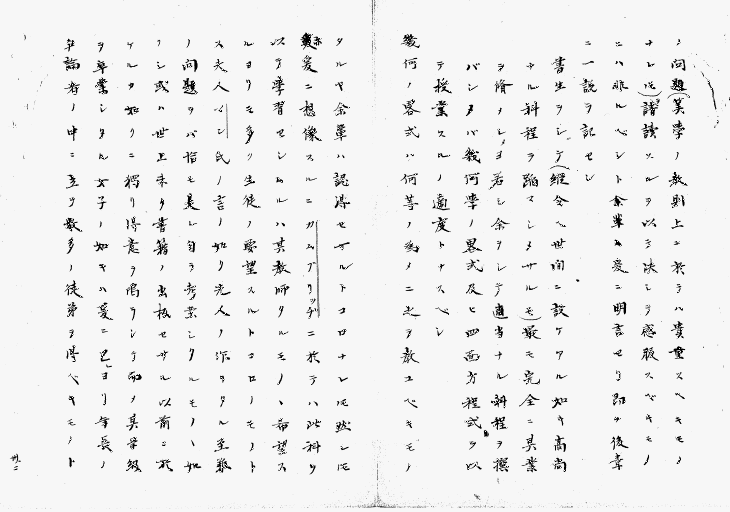 ノ問題(算学ノ教則上ニ於テハ貴重スベキモノ
ナレ𪜈)諳読スルヲ以テ決シテ感服スベキモノ
ニハ非ルベシト余輩爰ニ明言セリ即チ後章
ニ一説ヲ記セン
書生ヲシテ(縦令ヘ世間ニ設ケタル如キ高尚
ナル科程ヲ踏マシメサルモ)最モ完全ニ其業
ヲ脩メシメヨ若シ余ヲシテ適当ナル科程ヲ撰
バシメバ幾何学ノ畧式及ヒ四面方程式ヲ以
テ授業スルノ適度トナスベシ
幾何ノ畧式ハ何等ノ為メニ之ヲ教ユベキモノ
タルヤ余輩ハ認得セザルトコロナレ𪜈然レ𪜈
爰ニ想像スルニカムブリッヂニ於テハ此科ヲ
以テ学習セシムルハ其教師タルモノヽ希望ス
ルヨリモ多ク生徒ノ希望スルトコロノモノト
ス夫人レン氏ノ言ノ如ク先人ノ作ヲタル至難
ノ問題ヲバ恰モ是レ自ラ考案シタルモノヽ如
クシ或ハ世上未タ書籍ノ出板セサル以前ニ於
ケルカ如クニ独リ得意ヲ鳴ラシテ敢テ其等級
ヲ卒業シタル女子ノ如キハ爰ニ己ヨリ年長ノ
争論者ノ中ニ立テ数多ノ徒弟ヲ得ベキモノト